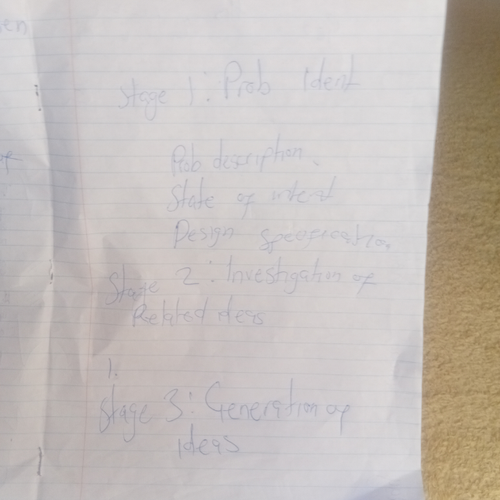 Stage 1: Prob Ident
Prob description.
State of intent
Design specification
Stage 2: Investigation of
Related ideas
1.
Stage 3: Generation of
ideas